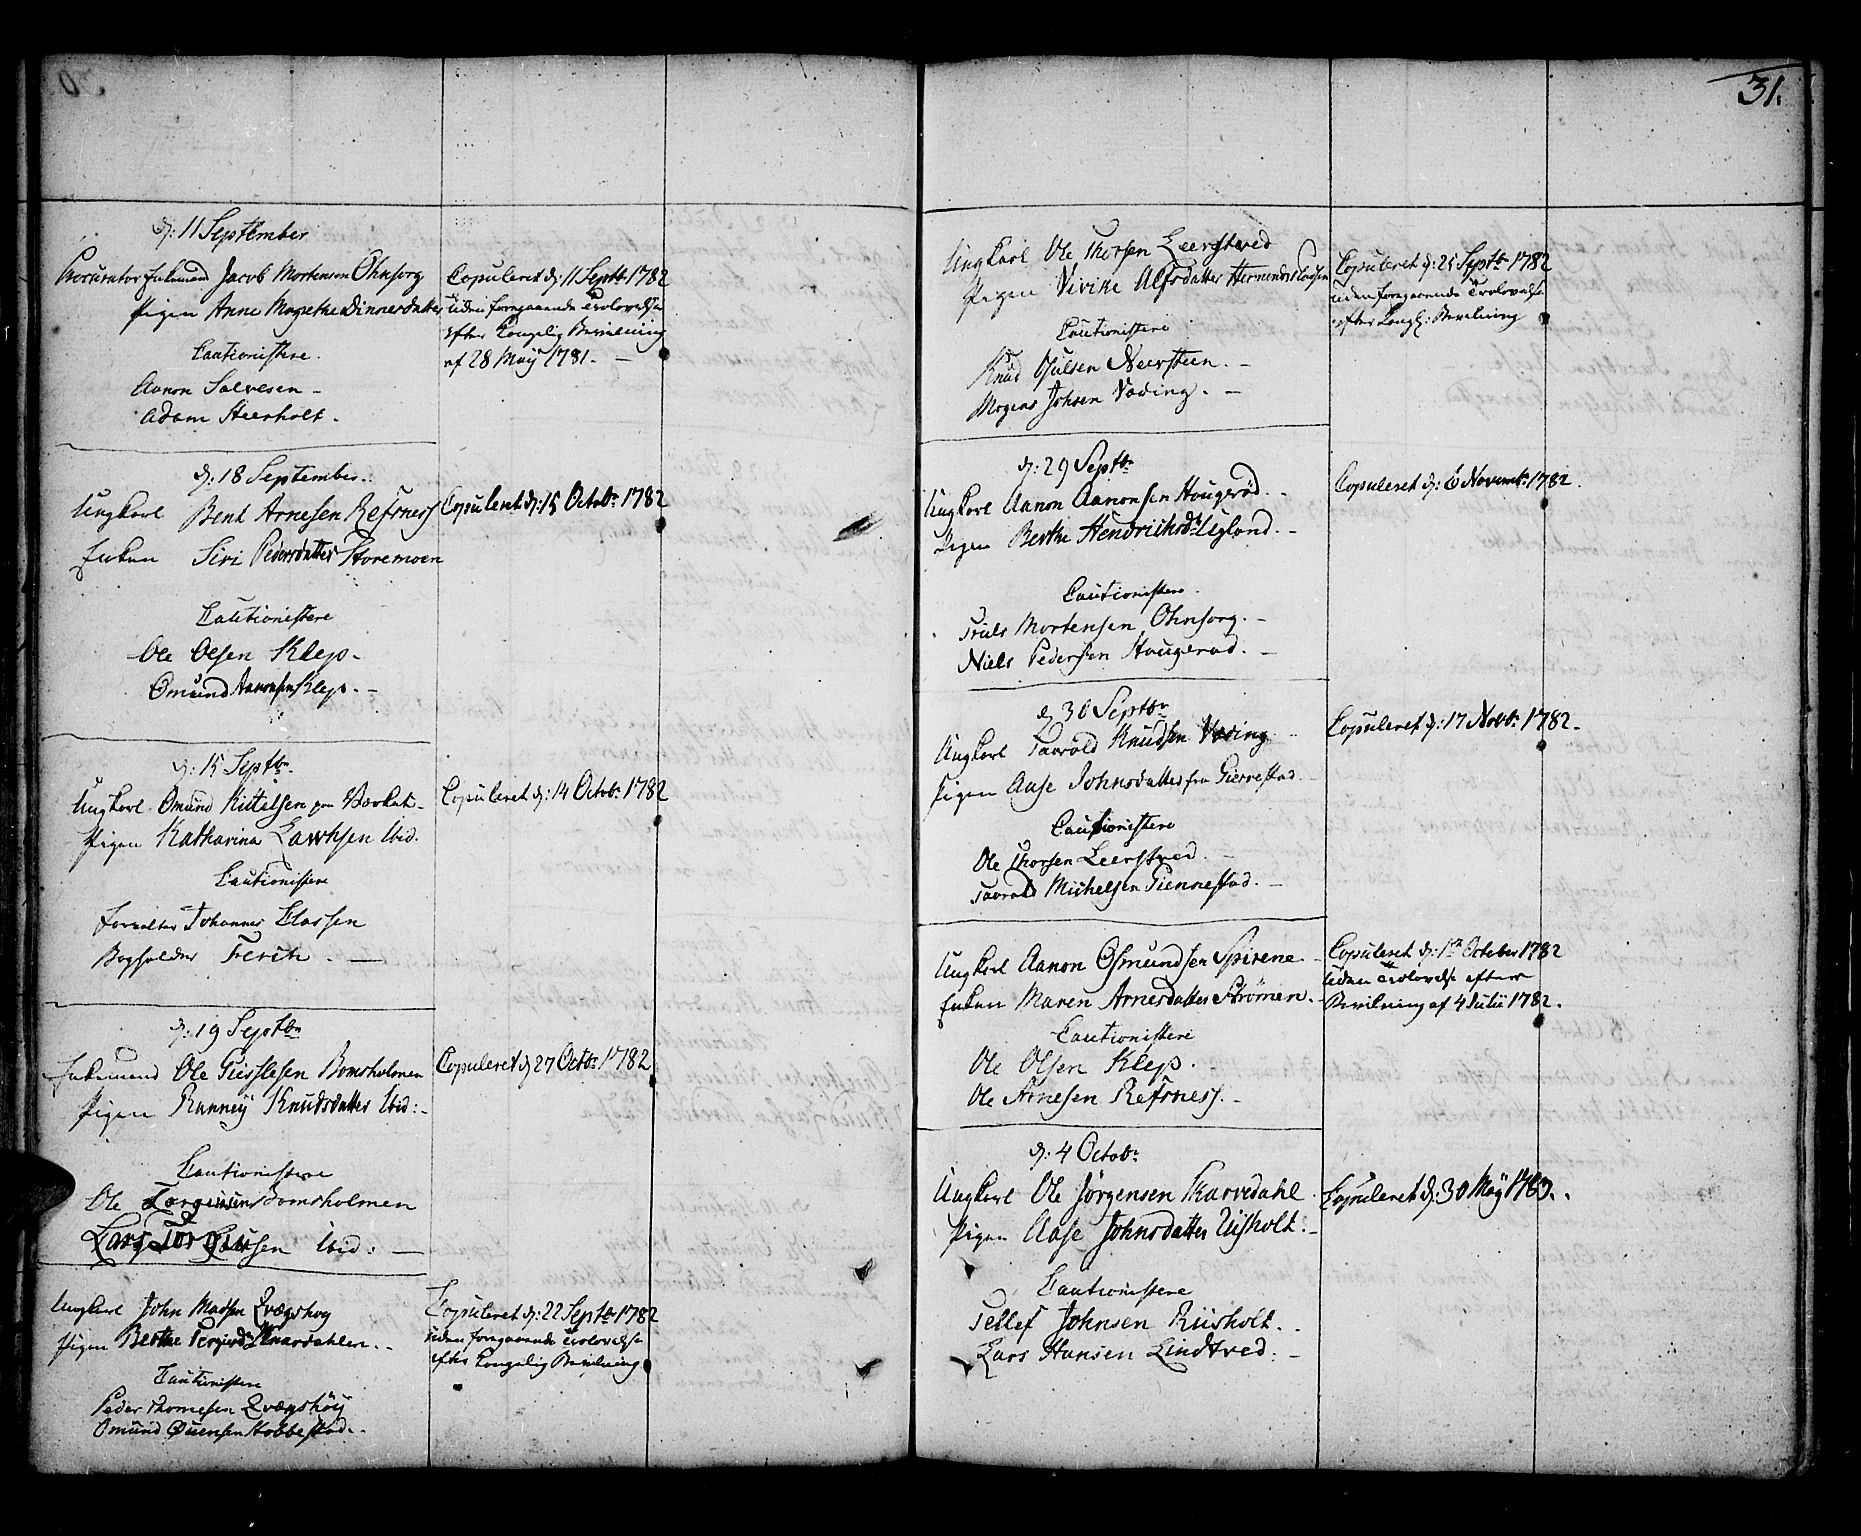 31.
d: 11 September
Procurator Enkemand Jacob Mortensen Ohnsorg
Pigen Anne Magrethe Dinnersdatter
Cautionistere.
Aanon Salvesen -
Adam Steerholt.
Copuleret d: 11 Septbr 1782
uden foregaaende Trolovelse
efter Kongelig Bevilning
af 28 Maij 1781. -
d: 18 September.
Ungkarl Bent Arnesen Refsnes
Enken Siri Pedersdatter Storemoen
Cautionistere
Ole Olsen Klep.
Omund Aanonsen Klep. -
Copuleret d: 15 Octobr 1782
d: 15 Septbr
Ungkarl Omund Kittelsen paa
Pigen Katharina Lawhsen Ibid.
Cautionistere
Forvalter Johannes Classen
Bogholder Ferch. -
Copuleret d: 14 Octobr 1782
d: 19 Septbr
Enkemand Ole Gislesen Bomsholmen
Pigen Ranneij Knudsdatter Ibid: -
Cautionistere
Ole Torgeusen Bomsholmen
Lars Larsen Ibid: -
Copuleret d 27 Octbr 1782
Ungkarl John Madsen Qvægshog
Pigen Berthe Terjesd: Skaardahlen. -
Cautionistere
Peder Thomesen Qvægshöij
Omund Ouensen Stobbestad. -
Copuleret d: 22 Septbr 1782
uden foregaaende Trolovelse
efter Kongelig Bevilning
Ungkarl Ole Thorsen Leerstved
Pigen Vivike Alfsdatter
Cautionistere
Knud Osulsen Neersteen. -
Mogens Johsen Vading. -
Copuleret d: 25 Septbr 1782
uden foregaaende Trolovelse
efter Kongl: Bevilning
d: 29 Septbr
Ungkarl Aanon Aanonsen Hougerød. -
Pigen Berthe Hendrichsdr Ugland. -
Cautionistere.
Niels Mortensen Ohnsorg. -
Niels Pedersen Hougerod. -
Copuleret d: 6 Novembr 1782.
d 30 Septbr
Ungkarl Taarald Knudsen Vading
Pigen Aase Johnsdatter fra Gierrestad
Cautionistere
Ole Thorsen Leerstved. -
Taarald Michelsen Giennestad. -
Copuleret d: 17 Novbr 1782.
Ungkarl Aanon Osmundsen Spirene
Enken Maren Arnesdatter Strømen. -
Cautionistere
Ole Olsen Klep.
Ole Arnesen Refsnes. -
Copuleret d: 1te October 1782
uden Trolovelse efter
Bevilning af 4 Julii 1782.
d: 4 Octobr
Ungkarl Ole Jörgensen Skarvedahl
Pigen Aase Johnsdatter Riisholt. -
Cautionistere
Tellef Johnsen Riisholt. -
Lars Hansen Lindtved. -
Copuleret d: 30 Maij 1783. -